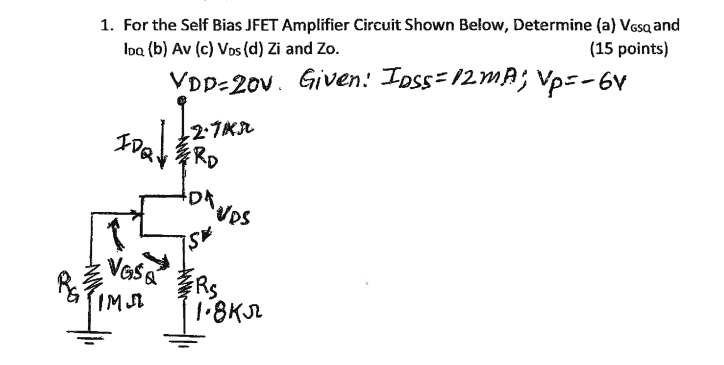 1. For the Self Bias JFET Amplifier Circuit Shown Below, Determine (a) VGSQ and
IDQ (b) Av (c) VDS (d) Zi and Zo. (15 points)
VDD=20V. Given: IDSS=12mA; Vp=-6V
2.7KΩ
IDQ
RD
D
VDS
S
VGSQ
RG
RS
1MΩ
1.8KΩ